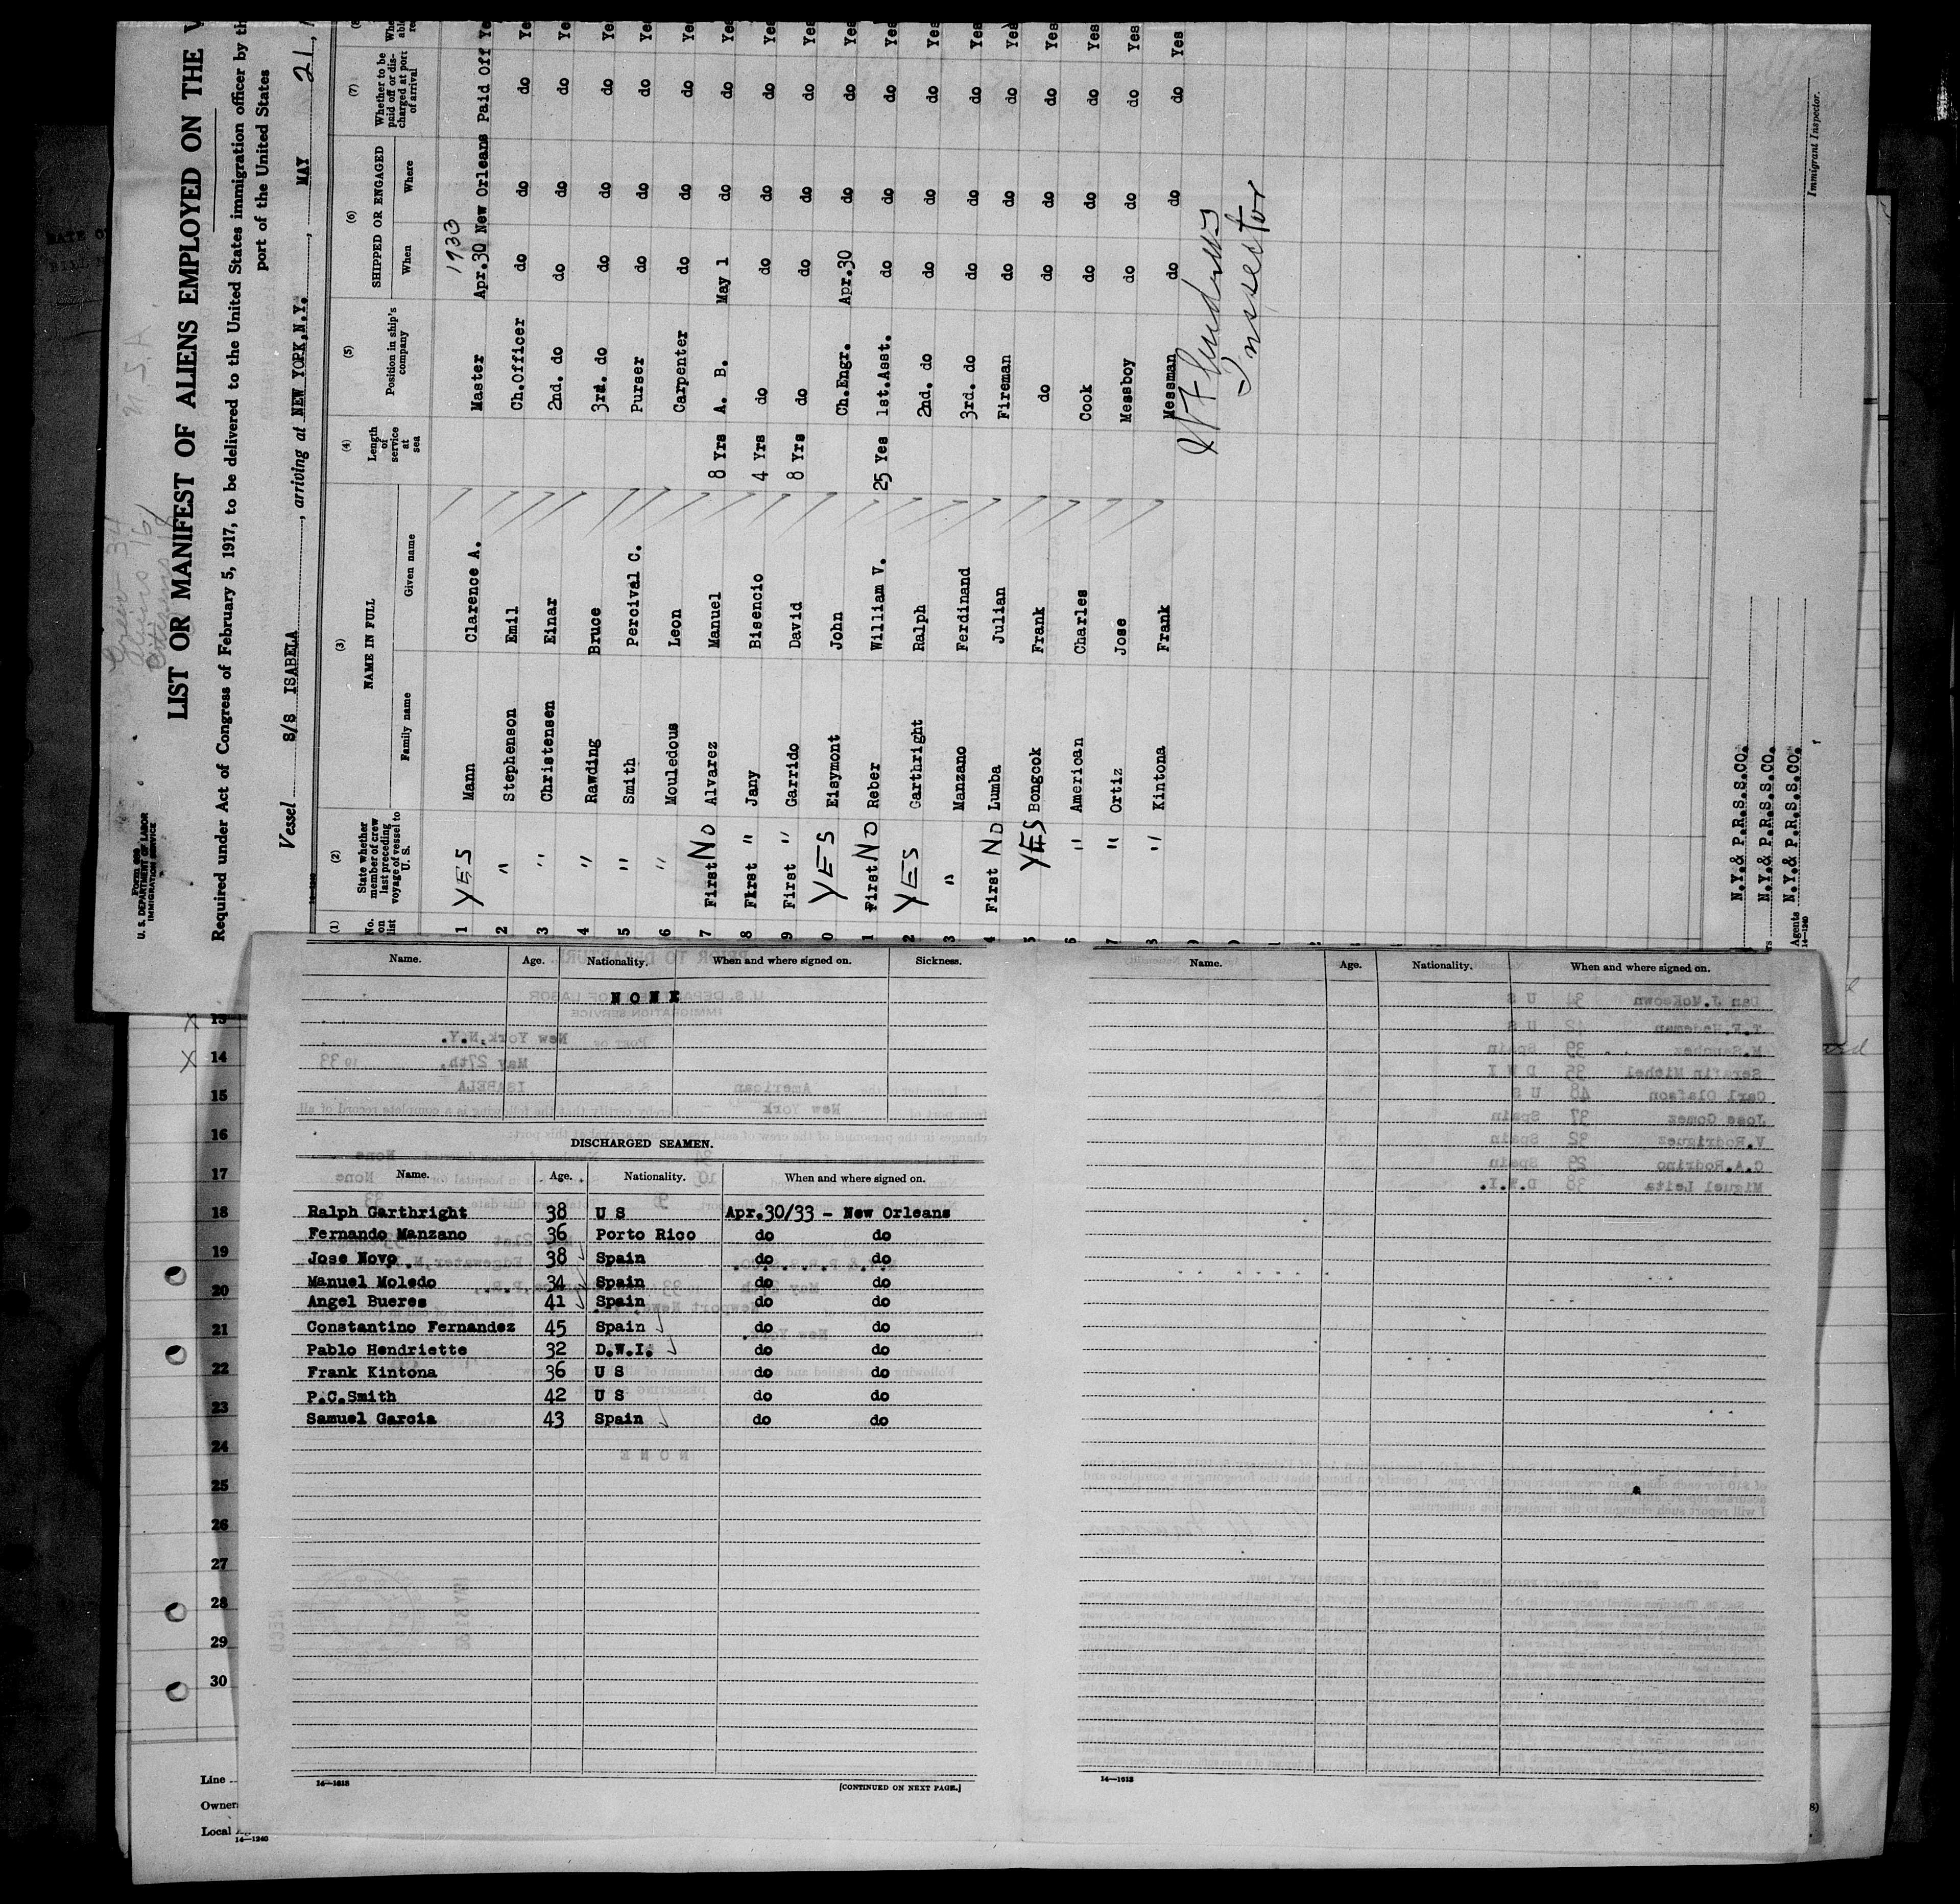 Form 689
U. S. DEPARTMENT OF LABOR
IMMIGRATION SERVICE
LIST OR MANIFEST OF ALIENS EMPLOYED ON THE V
Required under Act of Congress of February 5, 1917, to be delivered to the United States immigration officer by th
port of the United States
Vessel S/S ISABELA, arriving at NEW YORK, N.Y., MAY 21,
14-1240
(1) (2) (3) (4) (5) (6) (7)
No. on list State whether member of crew last preceding voyage of vessel to U. S. NAME IN FULL Length of service at sea Position in ship's company SHIPPED OR ENGAGED Whether to be paid off or discharged at port of arrival
Family name Given name When Where
1933
1 YES Mann Clarence A. Master Apr.30 New Orleans Paid Off Yes
2 " Stephenson Emil Ch.Officer do do do Yes
3 " Christensen Einar 2nd. do do do do Yes
4 " Rawding Bruce 3rd. do do do do Yes
5 " Smith Percival C. Purser do do do Yes
6 " Mouledous Leon Carpenter do do do Yes
7 First NO Alvarez Manuel 8 Yrs A. B. May 1 do do Yes
8 First " Jany Bisencio 4 Yrs do do do do Yes
9 First " Garrido David 8 Yrs do do do do Yes
0 YES Eisymont John Ch.Engr. Apr.30 do do Yes
1 First NO Reber William V. 25 Yes 1st.Asst. do do do Yes
2 YES Garthright Ralph 2nd. do do do do Yes
3 " Manzano Ferdinand 3rd. do do do do Yes
4 First NO Lumba Julian Fireman do do do Yes
5 YES Bongcok Frank do do do do Yes
6 " American Charles Cook do do do Yes
7 " Ortiz Jose Messboy do do do Yes
8 " Kintona Frank Messman do do do Yes
Inspector
N.Y.& P.R.S.S.CO.
N.Y.& P.R.S.S.CO.
Agents N.Y.& P.R.S.S.CO.
14-1240
Immigrant Inspector.
Name. Age. Nationality. When and where signed on. Sickness.
NONE
DISCHARGED SEAMEN.
Name. Age. Nationality. When and where signed on.
Ralph Garthright 38 U S Apr.30/33 - New Orleans
Fernando Manzano 36 Porto Rico do do
Jose Novo 38 Spain do do
Manuel Moledo 34 Spain do do
Angel Bueres 41 Spain do do
Constantino Fernandez 45 Spain do do
Pablo Hendriette 32 D.W.I. do do
Frank Kintona 36 U S do do
P.C.Smith 42 U S do do
Samuel Garcia 43 Spain do do
14-1613
[CONTINUED ON NEXT PAGE.]
Name. Age. Nationality. When and where signed on.
14-1613
13
14
15
16
17
18
19
20
21
22
23
24
25
26
27
28
29
30
Line
Owner
Local
14-1240